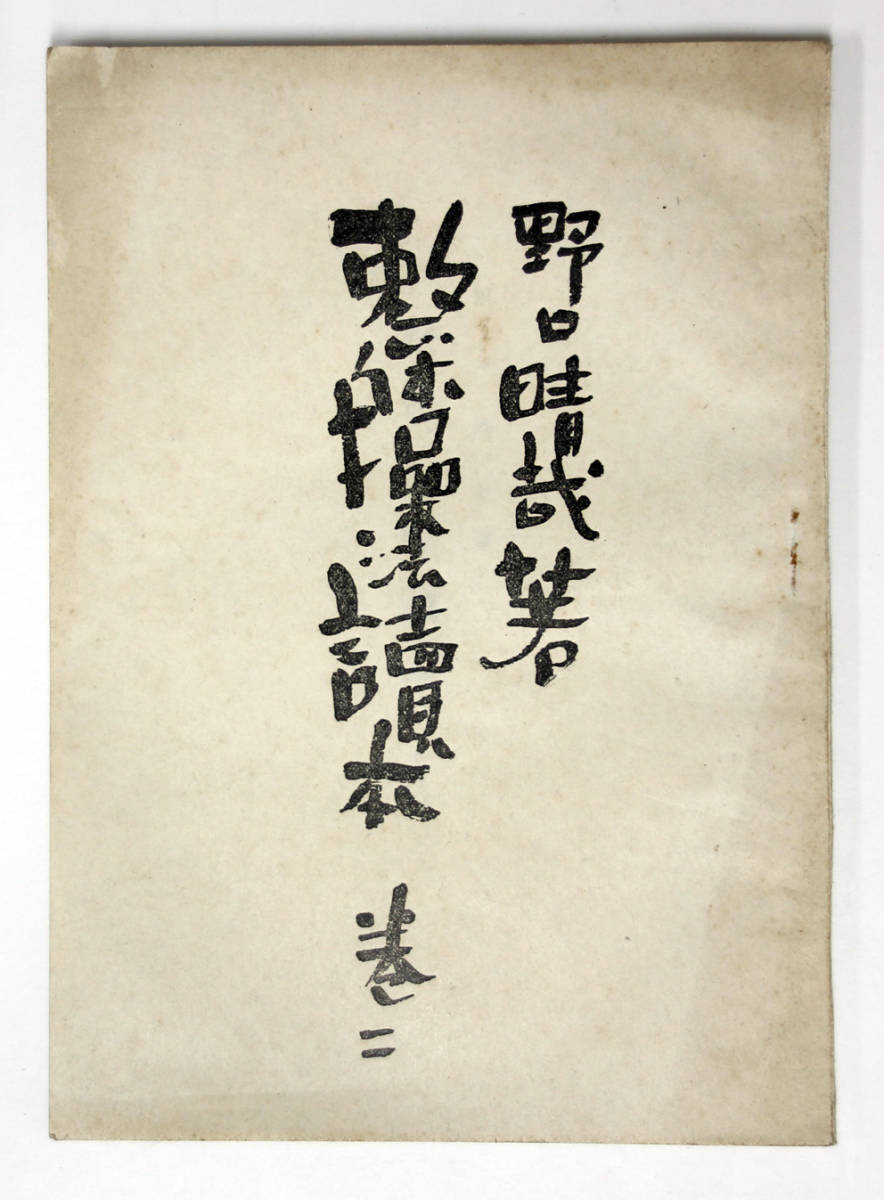 野口晴哉著
整体操法讀本 巻二